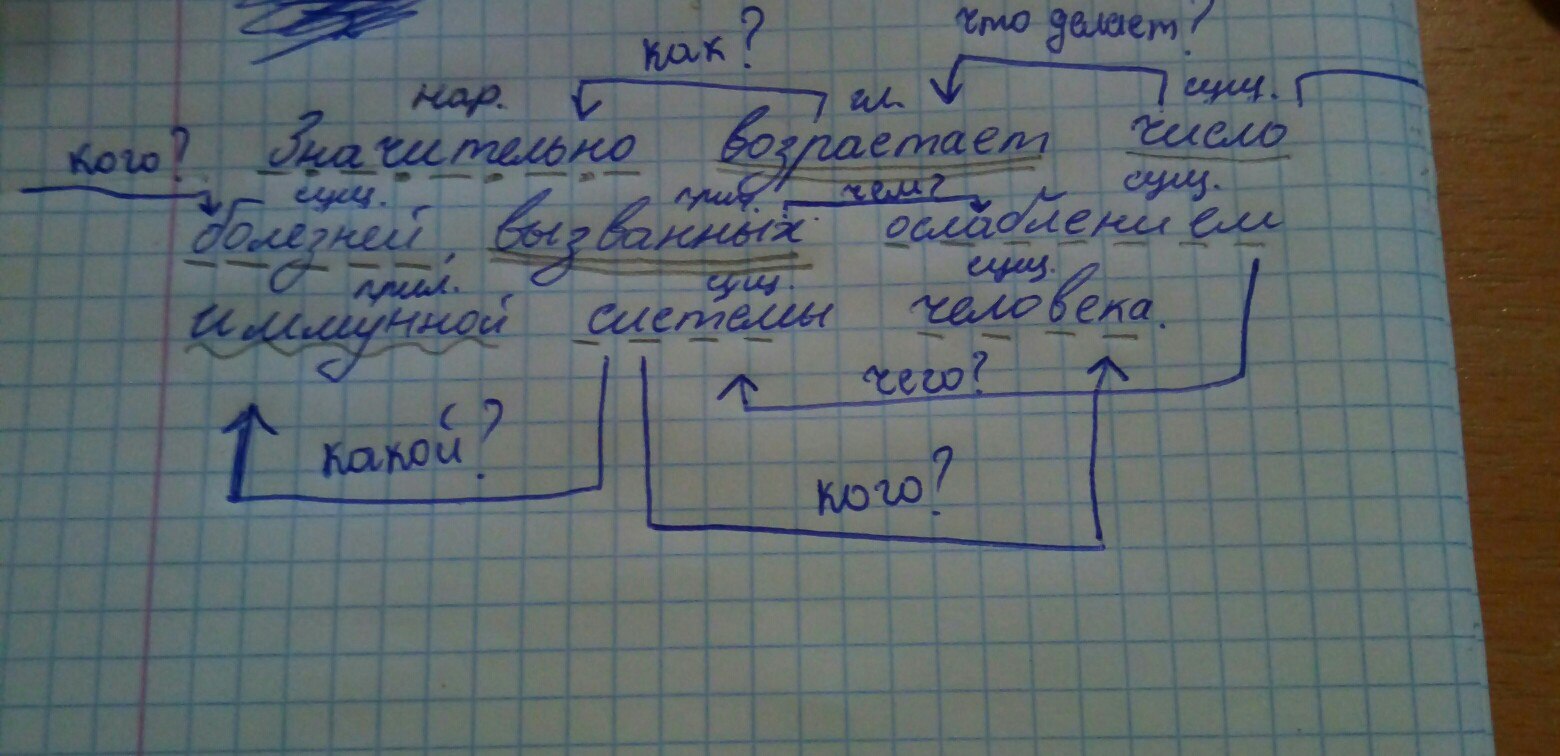 как? что делает?
нар. гл. сущ.
кого? Значительно возрастает число
сущ. прил. чем? сущ.
болезней, вызванных ослаблением
прил. сущ. сущ.
иммунной системы человека.
чего?
какой?
кого?